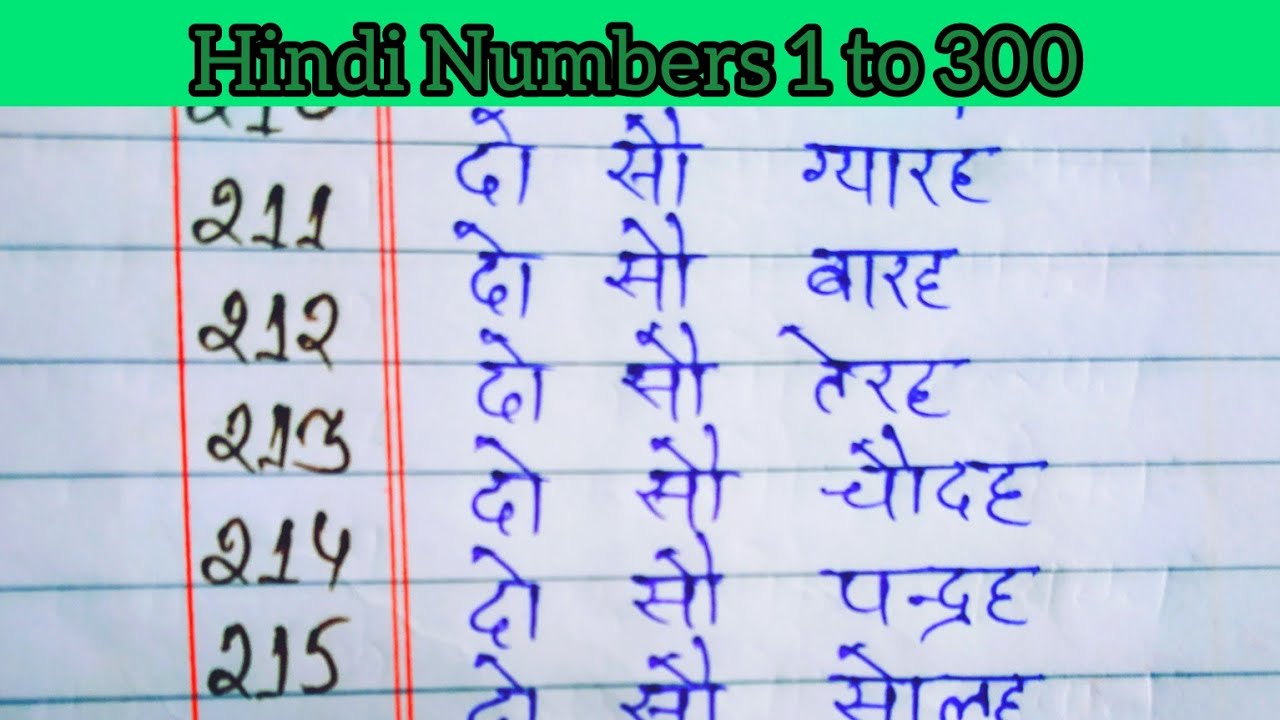 Hindi Numbers 1 to 300
211 दो सौ ग्यारह
212 दो सौ बारह
213 दो सौ तेरह
214 दो सौ चौदह
215 दो सौ पन्द्रह
दो सौ सोलह